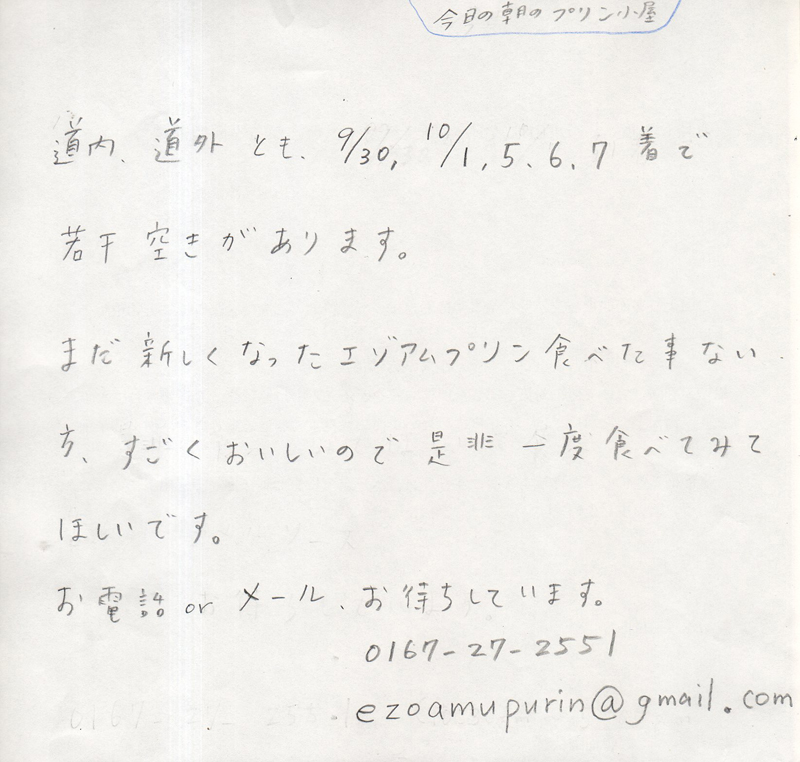 今日の朝のプリン小屋
道内、道外とも、9/30, 10/1, 5、6、7 着で
若干空きがあります。
まだ新しくなったエゾアムプリン食べた事ない
方、すごくおいしいので是非一度食べてみて
ほしいです。
お電話orメール、お待ちしています。
0167-27-2551
ezoamupurin@gmail.com